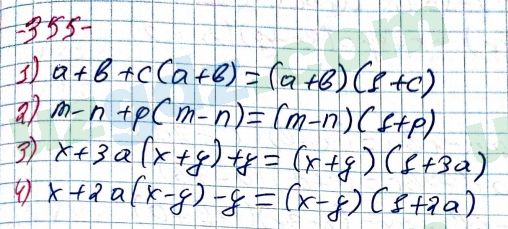 -355-
1) a+b+c(a+b)=(a+b)(1+c)
2) m-n+p(m-n)=(m-n)(1+p)
3) x+3a(x+y)+y=(x+y)(1+3a)
4) x+2a(x-y)-y=(x-y)(1+2a)